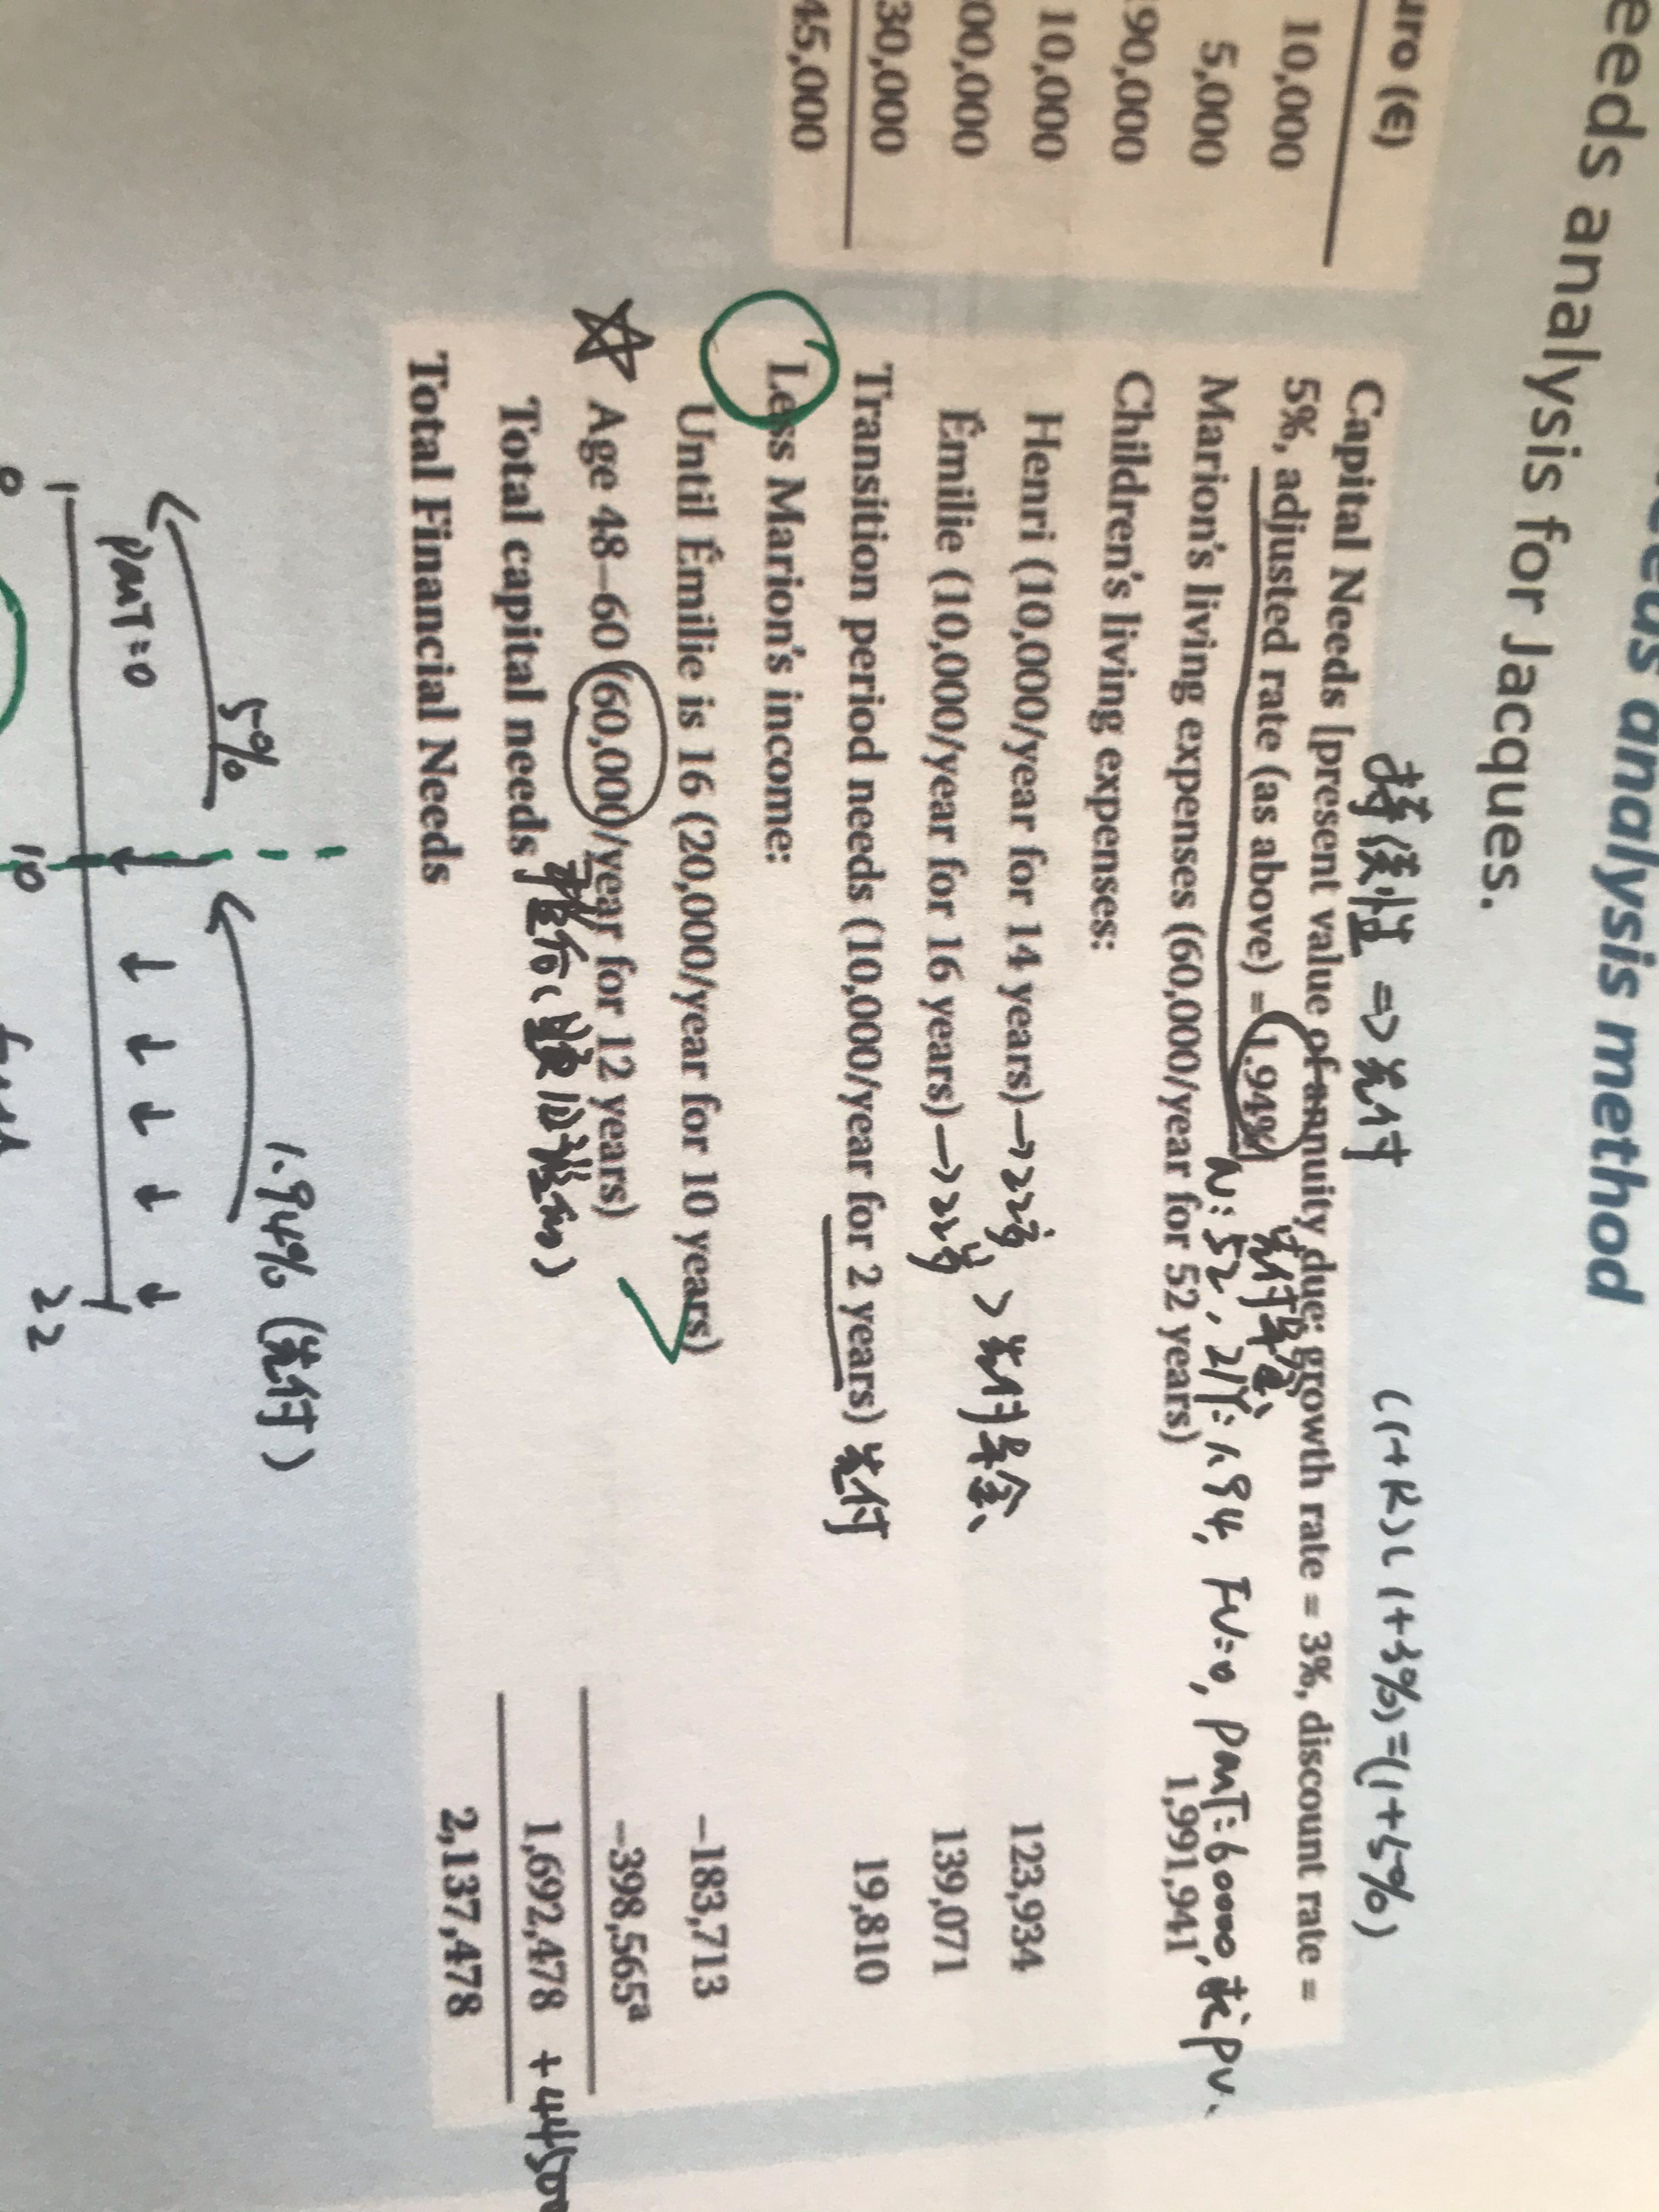 eeds analysis method
eeds analysis for Jacques.
uro (€)
10,000
5,000
90,000
10,000
00,000
30,000
45,000
持续性 => 先付
(1+K)(1+3%)=(1+5%)
Capital Needs [present value of annuity due: growth rate = 3%, discount rate =
5%, adjusted rate (as above) = 1.94%]
先付年金、
N: 52, I/Y: 1.94, FV=0, PMT=60000, 求PV.
Marion's living expenses (60,000/year for 52 years) 1,991,941
Children's living expenses:
Henri (10,000/year for 14 years) 123,934
→22岁
Émilie (10,000/year for 16 years) 139,071
→22岁 > 先付年金、
Transition period needs (10,000/year for 2 years) 19,810
先付
Less Marion's income:
Until Émilie is 16 (20,000/year for 10 years) −183,713
Age 48–60 (60,000/year for 12 years) −398,565a
Total capital needs 1,692,478
Total Financial Needs 2,137,478
5%
1.94% (先付)
PMT=0
0 10 22